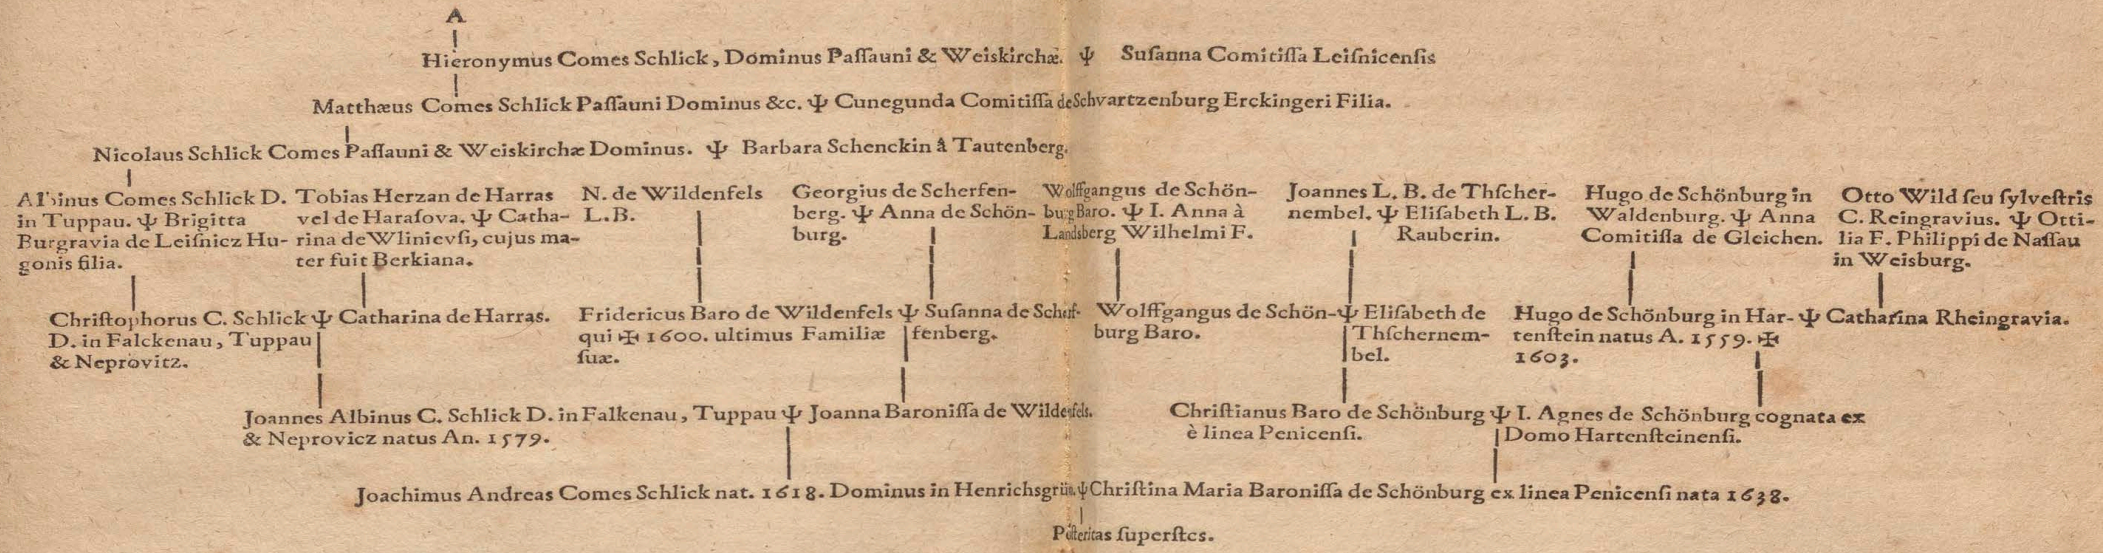 A
Hieronymus Comes Schlick, Dominus Paſſauni & Weiskirchæ. Ψ Suſanna Comitiſſa Leiſnicenſis
Matthæus Comes Schlick Paſſauni Dominus &c. Ψ Cunegunda Comitiſſa de Schvartzenburg Erckingeri Filia.
Nicolaus Schlick Comes Paſſauni & Weiskirchæ Dominus. Ψ Barbara Schenckin â Tautenberg.
Albinus Comes Schlick D.
in Tuppau. Ψ Brigitta
Burgravia de Leiſnicz Hu-
gonis filia.
Tobias Herzan de Harras
vel de Haraſova. Ψ Catha-
rina de Wlinievſi, cujus ma-
ter fuit Berkiana.
N. de Wildenfels
L.B.
Georgius de Scherfen-
berg. Ψ Anna de Schön-
burg.
Wolffgangus de Schön-
burg Baro. Ψ I. Anna à
Landsberg Wilhelmi F.
Joannes L. B. de Thſcher-
nembel. Ψ Eliſabeth L. B.
Rauberin.
Hugo de Schönburg in
Waldenburg. Ψ Anna
Comitiſſa de Gleichen.
Otto Wild ſeu ſylveſtris
C. Reingravius. Ψ Otti-
lia F. Philippi de Naſſau
in Weisburg.
Chriſtophorus C. Schlick Ψ Catharina de Harras.
D. in Falckenau, Tuppau
& Neprovitz.
Fridericus Baro de Wildenfels Ψ Suſanna de Scherf-
qui ✠ 1600. ultimus Familiæ fenberg.
ſuæ.
Wolffgangus de Schön- Ψ Eliſabeth de
burg Baro. Thſchernem-
bel.
Hugo de Schönburg in Har- Ψ Catharina Rheingravia.
tenſtein natus A. 1559. ✠
1603.
Joannes Albinus C. Schlick D. in Falkenau, Tuppau Ψ Joanna Baroniſſa de Wildenfels.
& Neprovicz natus An. 1579.
Chriſtianus Baro de Schönburg Ψ I. Agnes de Schönburg cognata ex
è linea Penicenſi. Domo Hartenſteinenſi.
Joachimus Andreas Comes Schlick nat. 1618. Dominus in Henrichsgrün. Ψ Chriſtina Maria Baroniſſa de Schönburg ex linea Penicenſi nata 1638.
Poſteritas ſuperſtes.